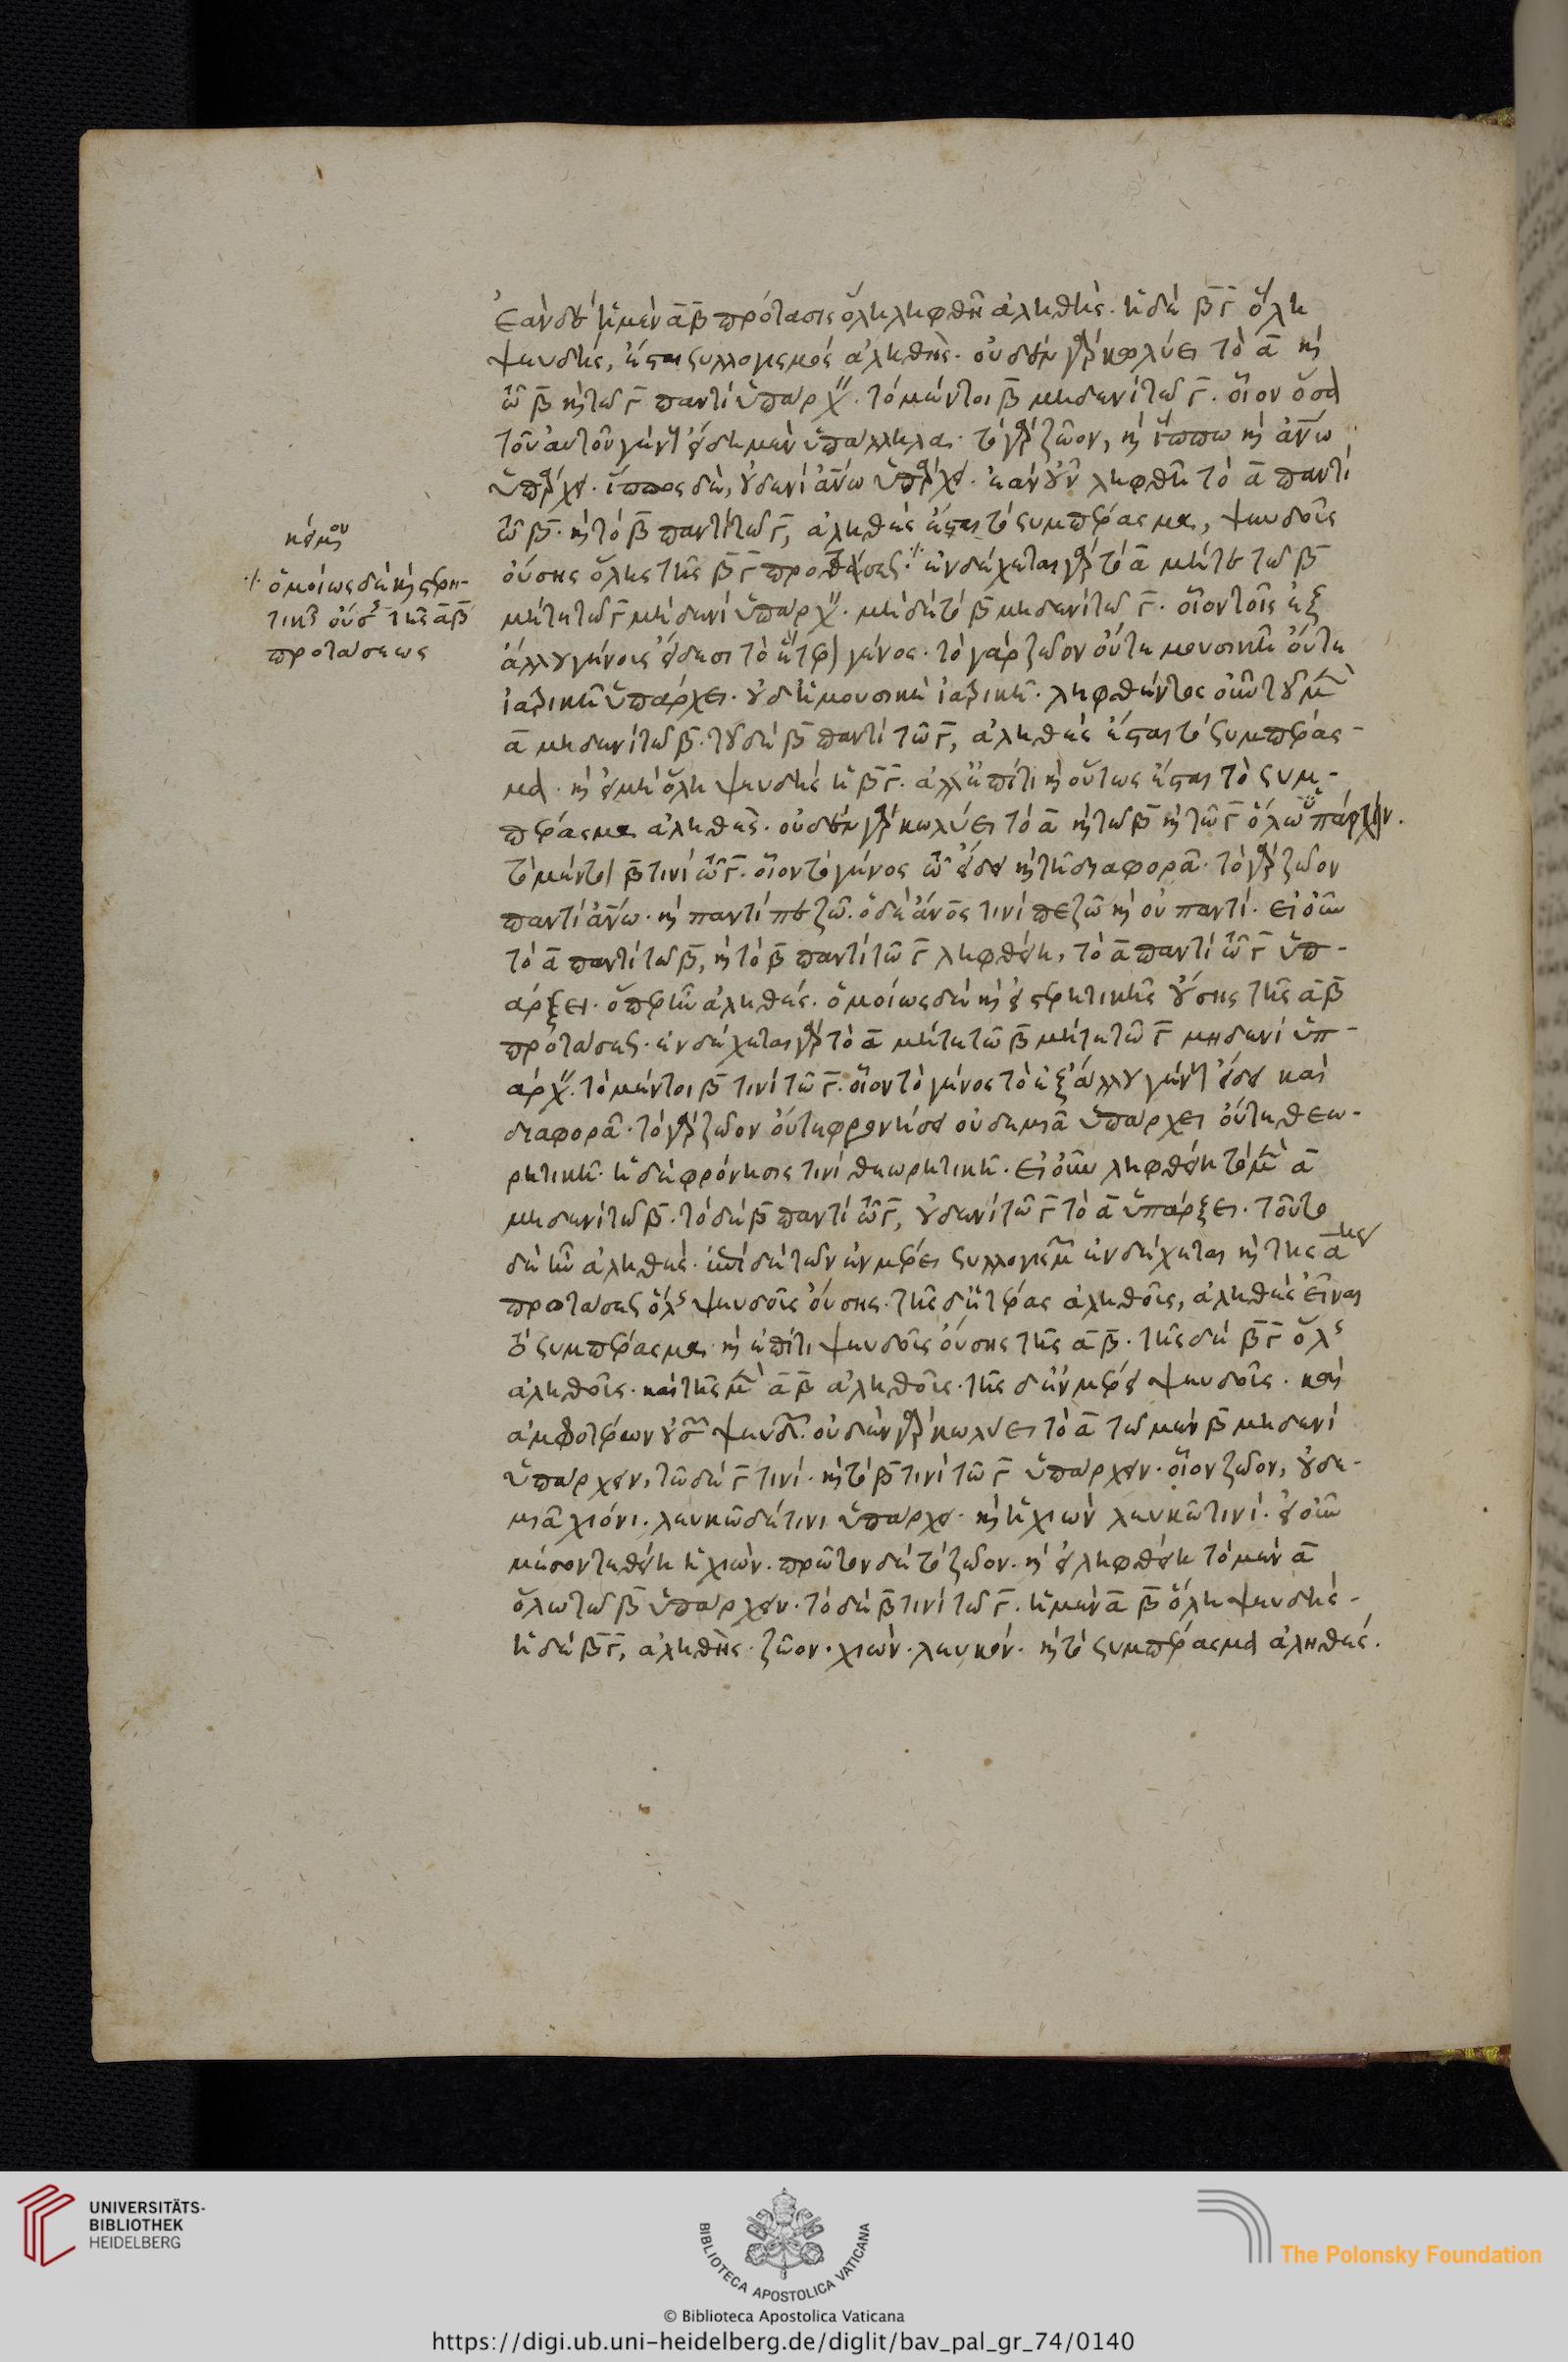 ἐὰν δ' ἡ μὲν ᾱβ̄ πρότασις ὅλη ληφθῆ ἀληθής· ἡ δὲ β̄γ̄ ὅλη
ψευδής, ἔσται συλλογισμός ἀληθής· οὐδὲν γὰρ κωλύει τὸ ᾱ καὶ
τῶ β̄ καὶ τῶ γ̄ παντὶ ὑπάρχειν· τὸ μέντοι β̄ μηδενὶ τῶ γ̄· οἷον ὅσα
τοῦ αὐτοῦ γένους εἴδη μὴ ὑπάλληλα· τὸ γὰρ ζῶον, καὶ ἵππω καὶ ἀνω
ὑπάρχει· ἵππος δὲ, οὐδενὶ ἀνω ὑπάρχει· ἐὰν οὖν ληφθῆ τὸ ᾱ παντὶ
τῶ β̄· καὶ τὸ β̄ παντὶ τῶ γ̄, ἀληθὲς ἔσται τὸ συμπέρασμα, ψευδοῦς
οὔσης ὅλης τῆς β̄γ̄ προτάσεως· ἐνδέχεται γὰρ τὸ ᾱ μήτε τῶ β̄
μήτε τῶ γ̄ μηδενὶ ὑπάρχειν· μηδὲ τὸ β̄ μηδενὶ τῶ γ̄· οἷον τοῖς ἐξ
ἄλλου γένους εἴδεσι τὸ ἕτερον γένος· τὸ γὰρ ζῶον οὔτε μουσικῆ οὔτε
ἰατρικῆ ὑπάρχει· οὐδ' ἡ μουσικὴ ἰατρικῆ· ληφθέντος οὖν τοῦ μὲν
ᾱ μηδενὶ τῶ β̄· τοῦ δὲ β̄ παντὶ τῶ γ̄, ἀληθὲς ἔσται τὸ συμπέρασ-
μα· καὶ εἰ μὴ ὅλη ψευδὴς ἡ β̄γ̄· ἀλλ' ἐπί τι καὶ οὕτως ἔσται τὸ συμ-
πέρασμα ἀληθές· οὐδὲν γὰρ κωλύει τὸ ᾱ καὶ τῶ β̄ καὶ τῶ γ̄ ὅλω ὑπάρχειν.
τὸ μέντοι β̄ τινὶ τῶ γ̄· οἷον τὸ γένος τῶ εἴδει καὶ τῆ διαφορᾶ· τὸ γὰρ ζῶον
παντὶ ἀνω· καὶ παντὶ πεζῶ· ὁ δὲ ἀνος τινὶ πεζῶ καὶ οὐ παντί· εἰ οὖν
τὸ ᾱ παντὶ τῶ β̄, καὶ τὸ β̄ παντὶ τῶ γ̄ ληφθείη, τὸ ᾱ παντὶ τῶ γ̄ ὑπ-
άρξει· ὅπερ ἦν ἀληθές· ὁμοίως δὲ καὶ εἰ στερητικῆς οὔσης τῆς ᾱβ̄
προτάσεως· ἐνδέχεται γὰρ τὸ ᾱ μήτε τῶ β̄ μήτε τῶ γ̄ μηδενὶ ὑπ-
άρχειν· τὸ μέντοι β̄ τινὶ τῶ γ̄· οἷον τὸ γένος τὸ ἐξ ἄλλου γένους εἴδει καὶ
διαφορᾶ· τὸ γὰρ ζῶον οὔτε φρονήσει οὐδεμιᾶ ὑπάρχει οὔτε θεω-
ρητικῆ· ἡ δὲ φρόνησις τινὶ θεωρητικῆ· εἰ οὖν ληφθείη τὸ μὲν ᾱ
μηδενὶ τῶ β̄· τὸ δὲ β̄ παντὶ τῶ γ̄, οὐδενὶ τῶ γ̄ τὸ ᾱ ὑπάρξει· τοῦτο
δὲ ἦν ἀληθές· ἐπὶ δὲ τῶν ἐν μέρει συλλογισμῶν ἐνδέχεται καὶ τῆς ᾱης
προτάσεως ὅλης ψευδοῦς οὔσης· τῆς δ' ἑτέρας ἀληθοῦς, ἀληθὲς εἶναι
τὸ συμπέρασμα· καὶ ἐπί τι ψευδοῦς οὔσης τῆς ᾱβ̄· τῆς δὲ β̄γ̄ ὅλης
ἀληθοῦς· καὶ τῆς μὲν ᾱβ̄ ἀληθοῦς· τῆς δ' ἐν μέρει ψευδοῦς· καὶ
ἀμφοτέρων οὐσῶν ψευδῶν· οὐδὲν γὰρ κωλύει τὸ ᾱ τῶ μὲν β̄ μηδενὶ
ὑπάρχειν, τῶ δὲ γ̄ τινί· καὶ τὸ β̄ τινὶ τῶ γ̄ ὑπάρχειν· οἷον ζῶον, οὐδε-
μιᾶ χιόνι· λευκῶ δὲ τινι ὑπάρχει· καὶ ἡ χιὼν λευκῶ τινί· εἰ οὖν
μέσον τεθείη ἡ χιών· πρῶτον δὲ τὸ ζῶον· καὶ εἰ ληφθείη τὸ μὲν ᾱ
ὅλω τῶ β̄ ὑπάρχειν· τὸ δὲ β̄ τινὶ τῶ γ̄· ἡ μὲν ᾱ β̄ ὅλη ψευδής·
ἡ δὲ β̄γ̄, ἀληθής· ζῶον· χιών· λευκόν· καὶ τὸ συμπέρασμα ἀληθές.
κείμενον
ὁμοίως δὲ καὶ στερη-
τικῆς οὔσης τῆς ᾱβ̄
προτάσεως
UNIVERSITÄTS-
BIBLIOTHEK
HEIDELBERG
BIBLIOTECA APOSTOLICA VATICANA
The Polonsky Foundation
© Biblioteca Apostolica Vaticana
https://digi.ub.uni-heidelberg.de/diglit/bav_pal_gr_74/0140